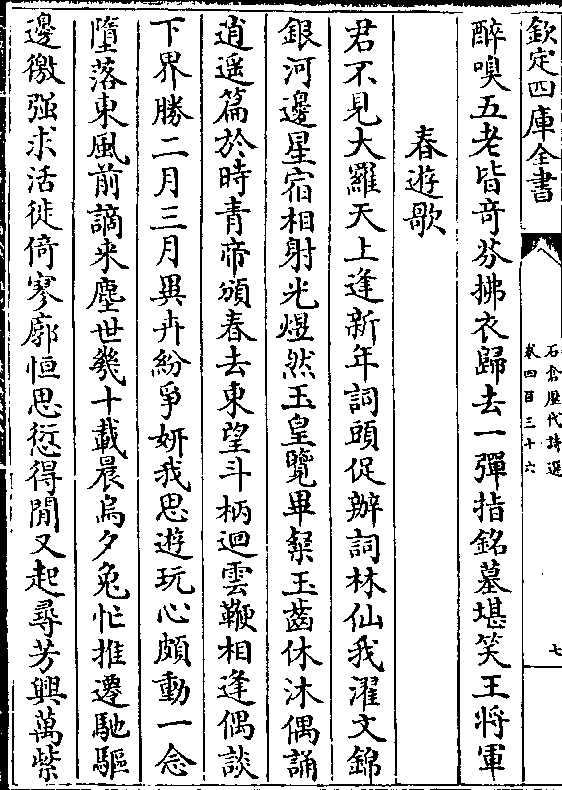 欽定四庫全書
石倉歷代詩選
卷四百三十六
七
醉嗅五老皆竒芬拂衣歸去一彈指銘墓堪笑王將軍
春遊歌
君不見大羅天上逢新年詞頭促辦詞林仙我濯文錦
銀河邊星宿相射光煜然玉皇覽畢粲玉齒休沐偶誦
逍遥篇於時青帝頒春去東望斗柄迴雲鞭相逢偶談
下界勝二月三月異卉紛爭妍我思遊玩心頗動一念
墮落東風前謫来塵世幾十載晨烏夕兔忙推遷馳驅
邊徼强求活徙倚寥廓恒思愆得閒又起尋芳興萬紫